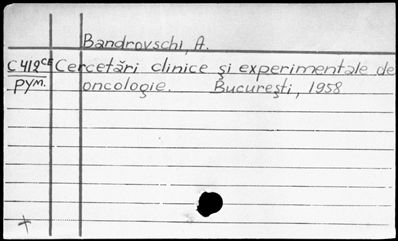 Bandrovschi, A.
C412CE Cercetări clinice şi experimentale de
рум. oncologie. Bucureşti, 1958